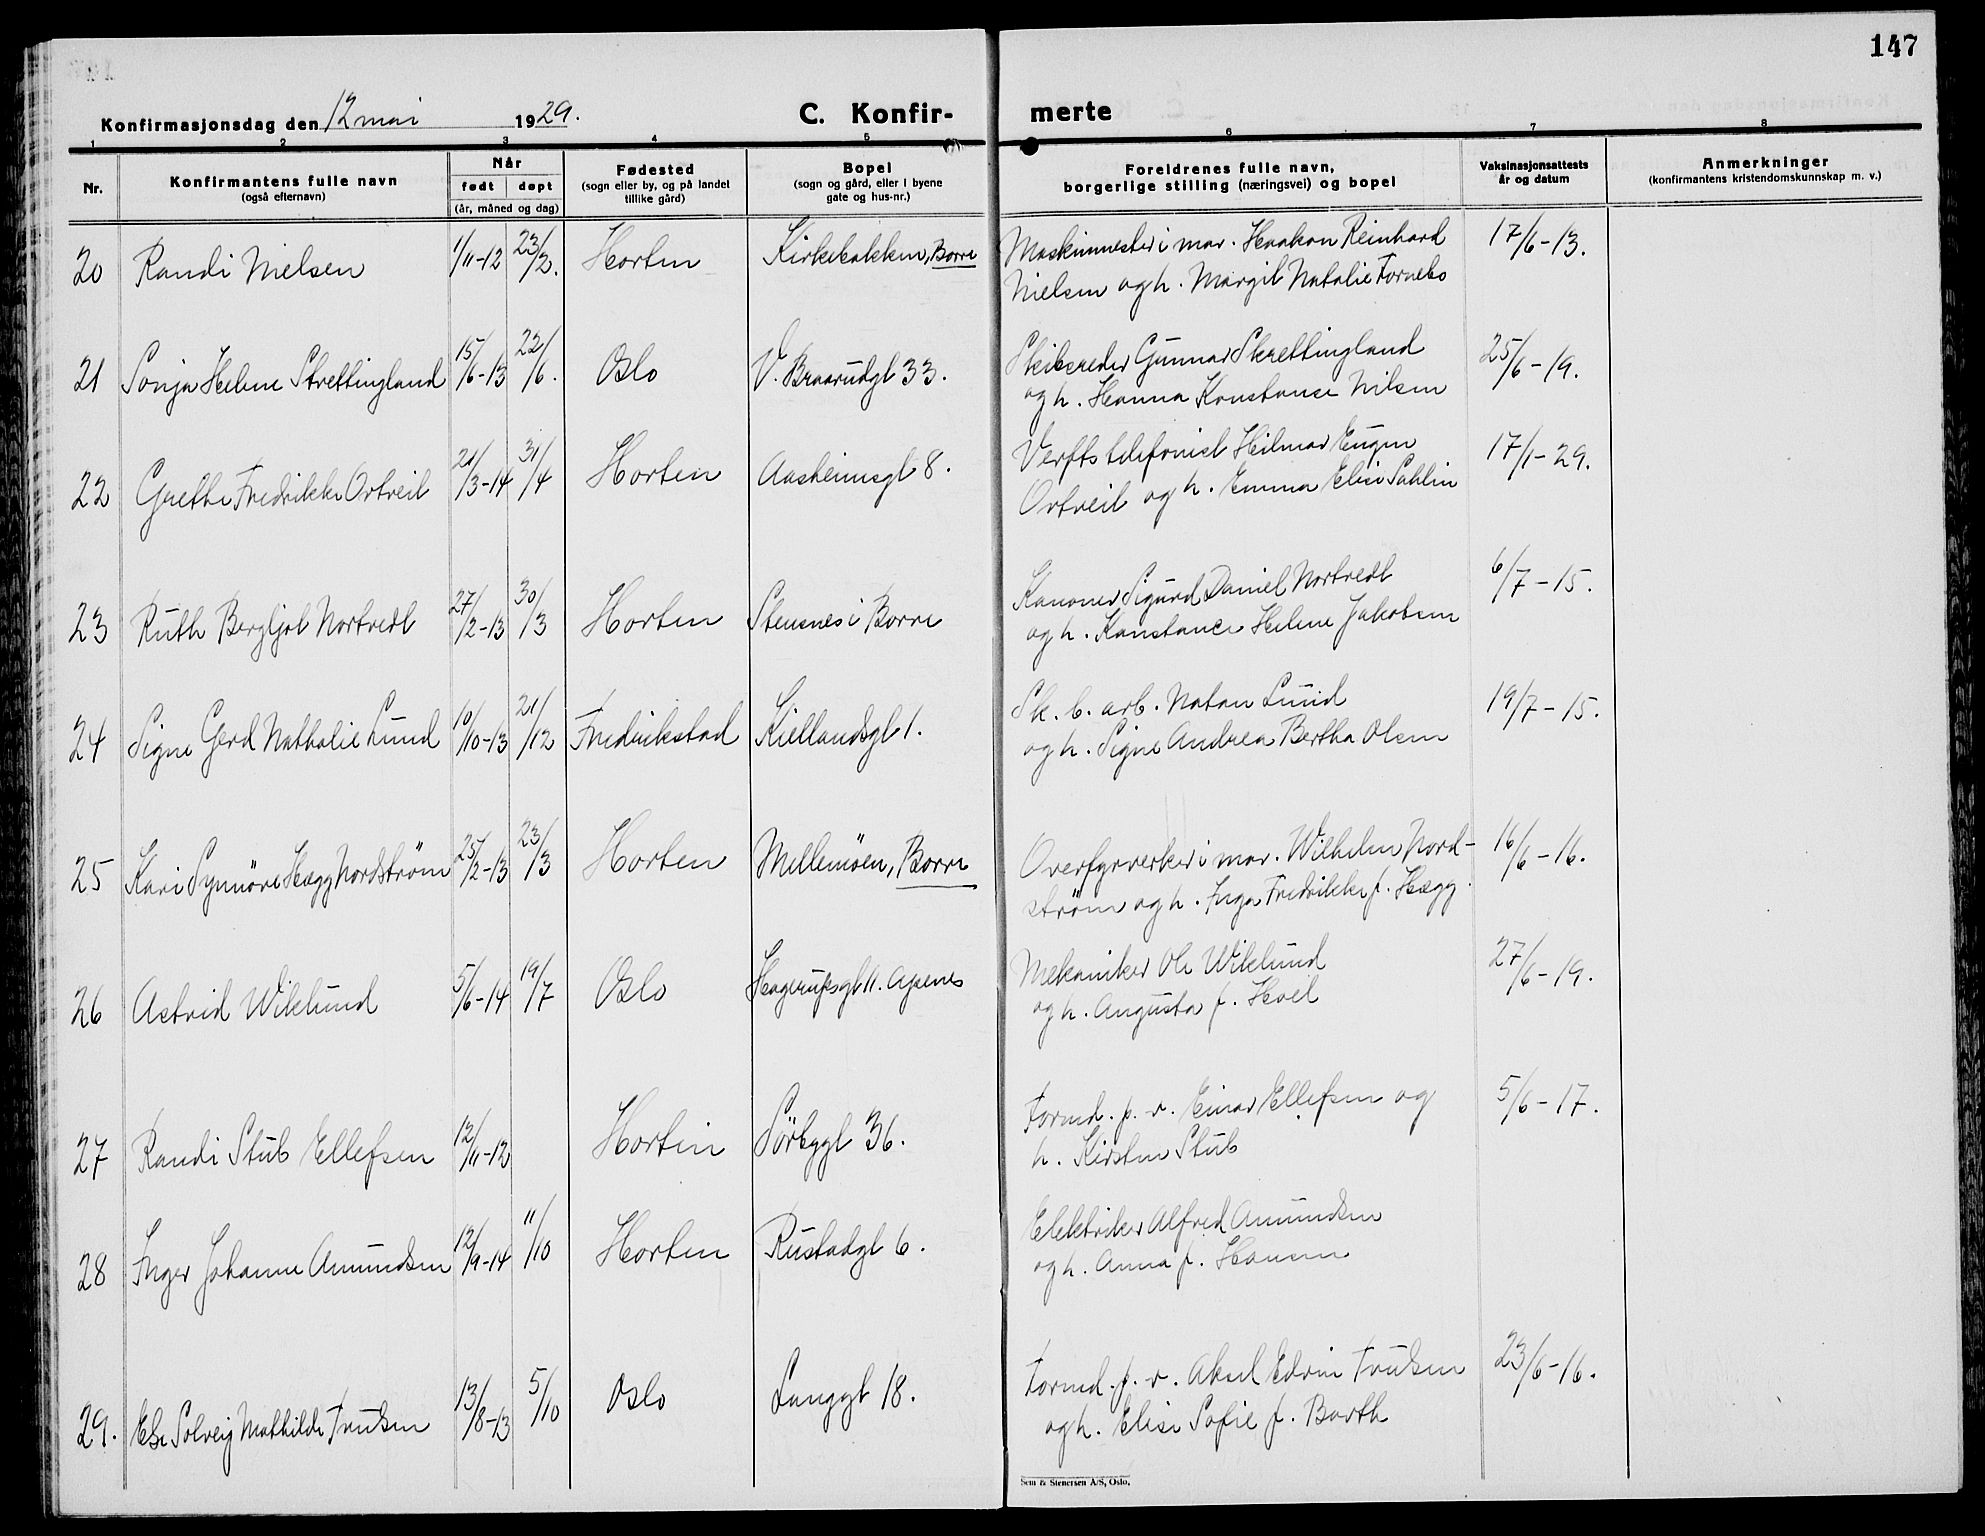 147
Konfirmasjonsdag den 12 mai 1929.
C. Konfir-
merte
1 2 3 4 5 6 7 8
Nr.
Konfirmantens fulle navn
(også efternavn)
Når
født døpt
(år, måned og dag)
Fødested
(sogn eller by, og på landet
tillike gård)
Bopel
(sogn og gård, eller i byene
gate og hus-nr.)
Foreldrenes fulle navn,
borgerlige stilling (næringsvei) og bopel
Vaksinasjonsattests
år og datum
Anmerkninger
(konfirmantens kristendomskunnskap m. v.)
20 Randi Nielsen 1/11-12 23/2. Horten Kirkebakken, Borre Maskinmester i mar. Haakon Reinhard 17/6-13.
Nielsen og h. Margit Natalie Fornebo
21 Sonja Helene Skrettingland 15/6-13 22/6. Oslo V. Braarudgt 33. Skibsreder Gunnar Skrettingland 25/6-19.
og h. Hanna Konstanse Nilsen
22 Grethe Fredrikke Ortveit 21/3-14 31/4 Horten Aasheimsgt 8. Verftstelefonist Hilmar Eugen 17/1-29.
Ortveit og h. Emma Elise Sahlin
23 Ruth Bergljot Nortvedt 27/2-13 30/3 Horten Stensnes i Borre Kanoner Sigurd Daniel Nortvedt 6/7-15.
og h. Konstance Helene Jakobsen
24 Signe Gerd Nathalie Lund 10/10-13 21/12 Fredrikstad Kiellandsgt 1. Sk. b. arb. Natan Lund 19/7-15.
og h. Signe Andrea Bertha Olsen
25 Kari Synnöve Hægg Nordström 25/2-13 23/3 Horten Mellemöen, Borre Overfyrverker i mar. Wilhelm Nord- 16/6-16.
ström og h. Inga Fredrikke f. Hægg.
26 Astrid Wiklund 5/6-14 19/7 Oslo Hagerupsgt 11. Apenes Mekaniker Ole Wiklund 27/6-19.
og h. Augusta f. Hoel
27 Randi Stub Ellefsen 12/11-12 Horten Sörbygt 36. Formd. p. v. Einar Ellefsen og 5/6-17.
h. Kirsten Stub
28 Inger Johanne Amundsen 12/9-14 11/10 Horten Rustadgt 6. Elektriker Alfred Amundsen
og h. Anna f. Hansen
29. Else Solveig Mathilde Trulsen 13/8-13 5/10 Oslo Langgt 18. Formd. p. v. Aksel Edvin Trulsen 23/6-16.
og h. Elise Sofie f. Barth
Sem & Stenersen A/S, Oslo.